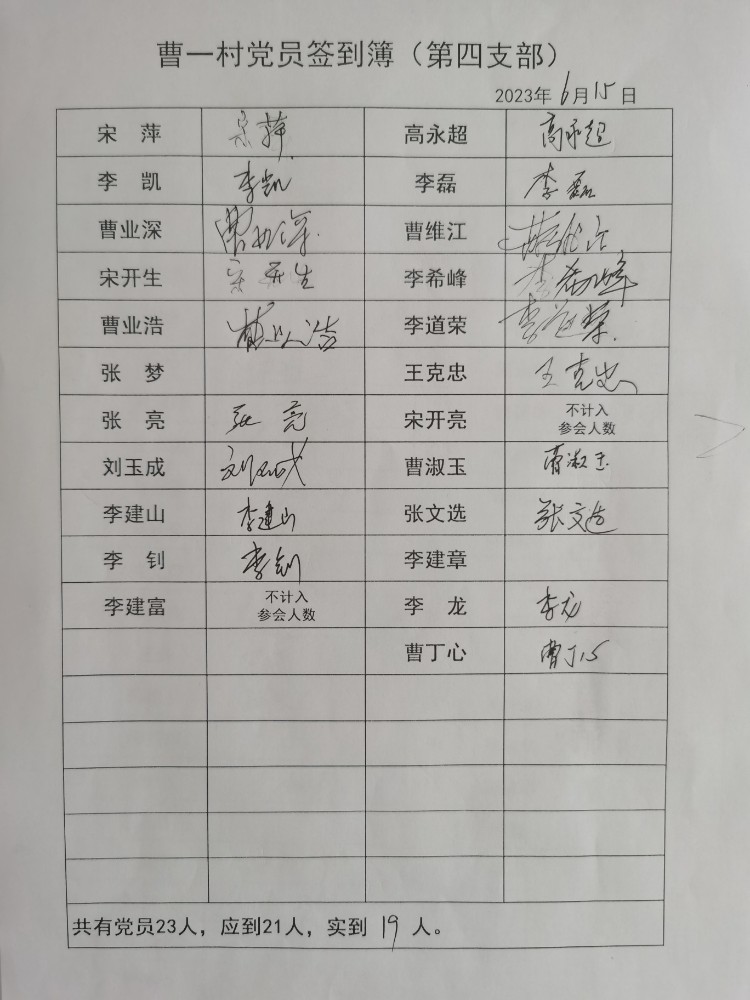 曹一村党员签到簿（第四支部）
2023年 6月15日
宋 萍 宋萍 高永超 高永超
李 凯 李凯 李磊 李磊
曹业深 曹业深 曹维江 曹维江
宋开生 宋开生 李希峰 李希峰
曹业浩 曹业浩 李道荣 李道荣
张 梦 王克忠 王克忠
张 亮 张亮 宋开亮 不计入
参会人数
刘玉成 刘玉成 曹淑玉 曹淑玉
李建山 李建山 张文选 张文选
李 钊 李钊 李建章
李建富 不计入 李 龙 李龙
参会人数
曹丁心 曹丁心
共有党员23人，应到21人，实到 19 人。